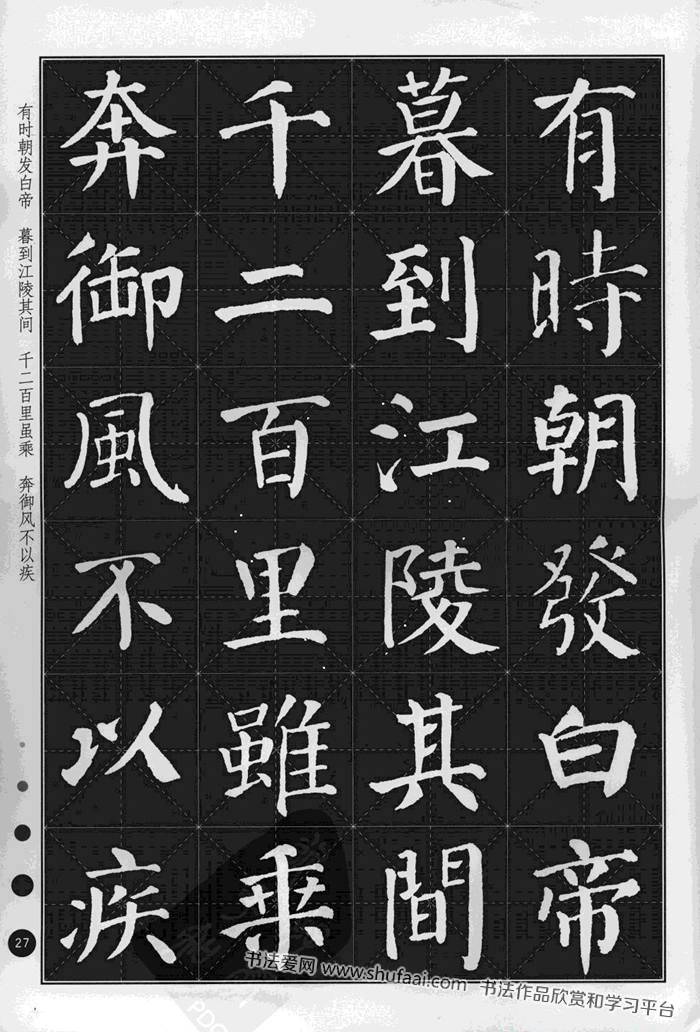 有時朝發白帝
暮到江陵其間
千二百里雖乗
奔御風不以疾
有时朝发白帝 暮到江陵其间 千二百里虽乘 奔御风不以疾
27
书法爱网 www.shufaai.com 书法作品欣赏和学习平台